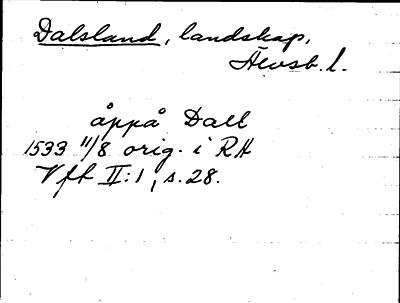 Dalsland, landskap,
Älvsb. l.
åppå Dall
1533 11/8 orig. i RA
Vft II:1, s. 28.